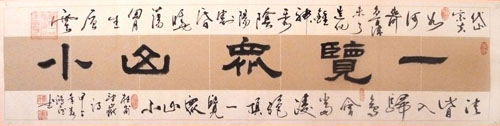 岱宗夫如何齊魯青未了造化鍾神秀陰陽割昏曉蕩胸生層雲
一覽眾山小
決眥入歸鳥會當凌絕頂一覽眾山小
杜甫望嶽詩